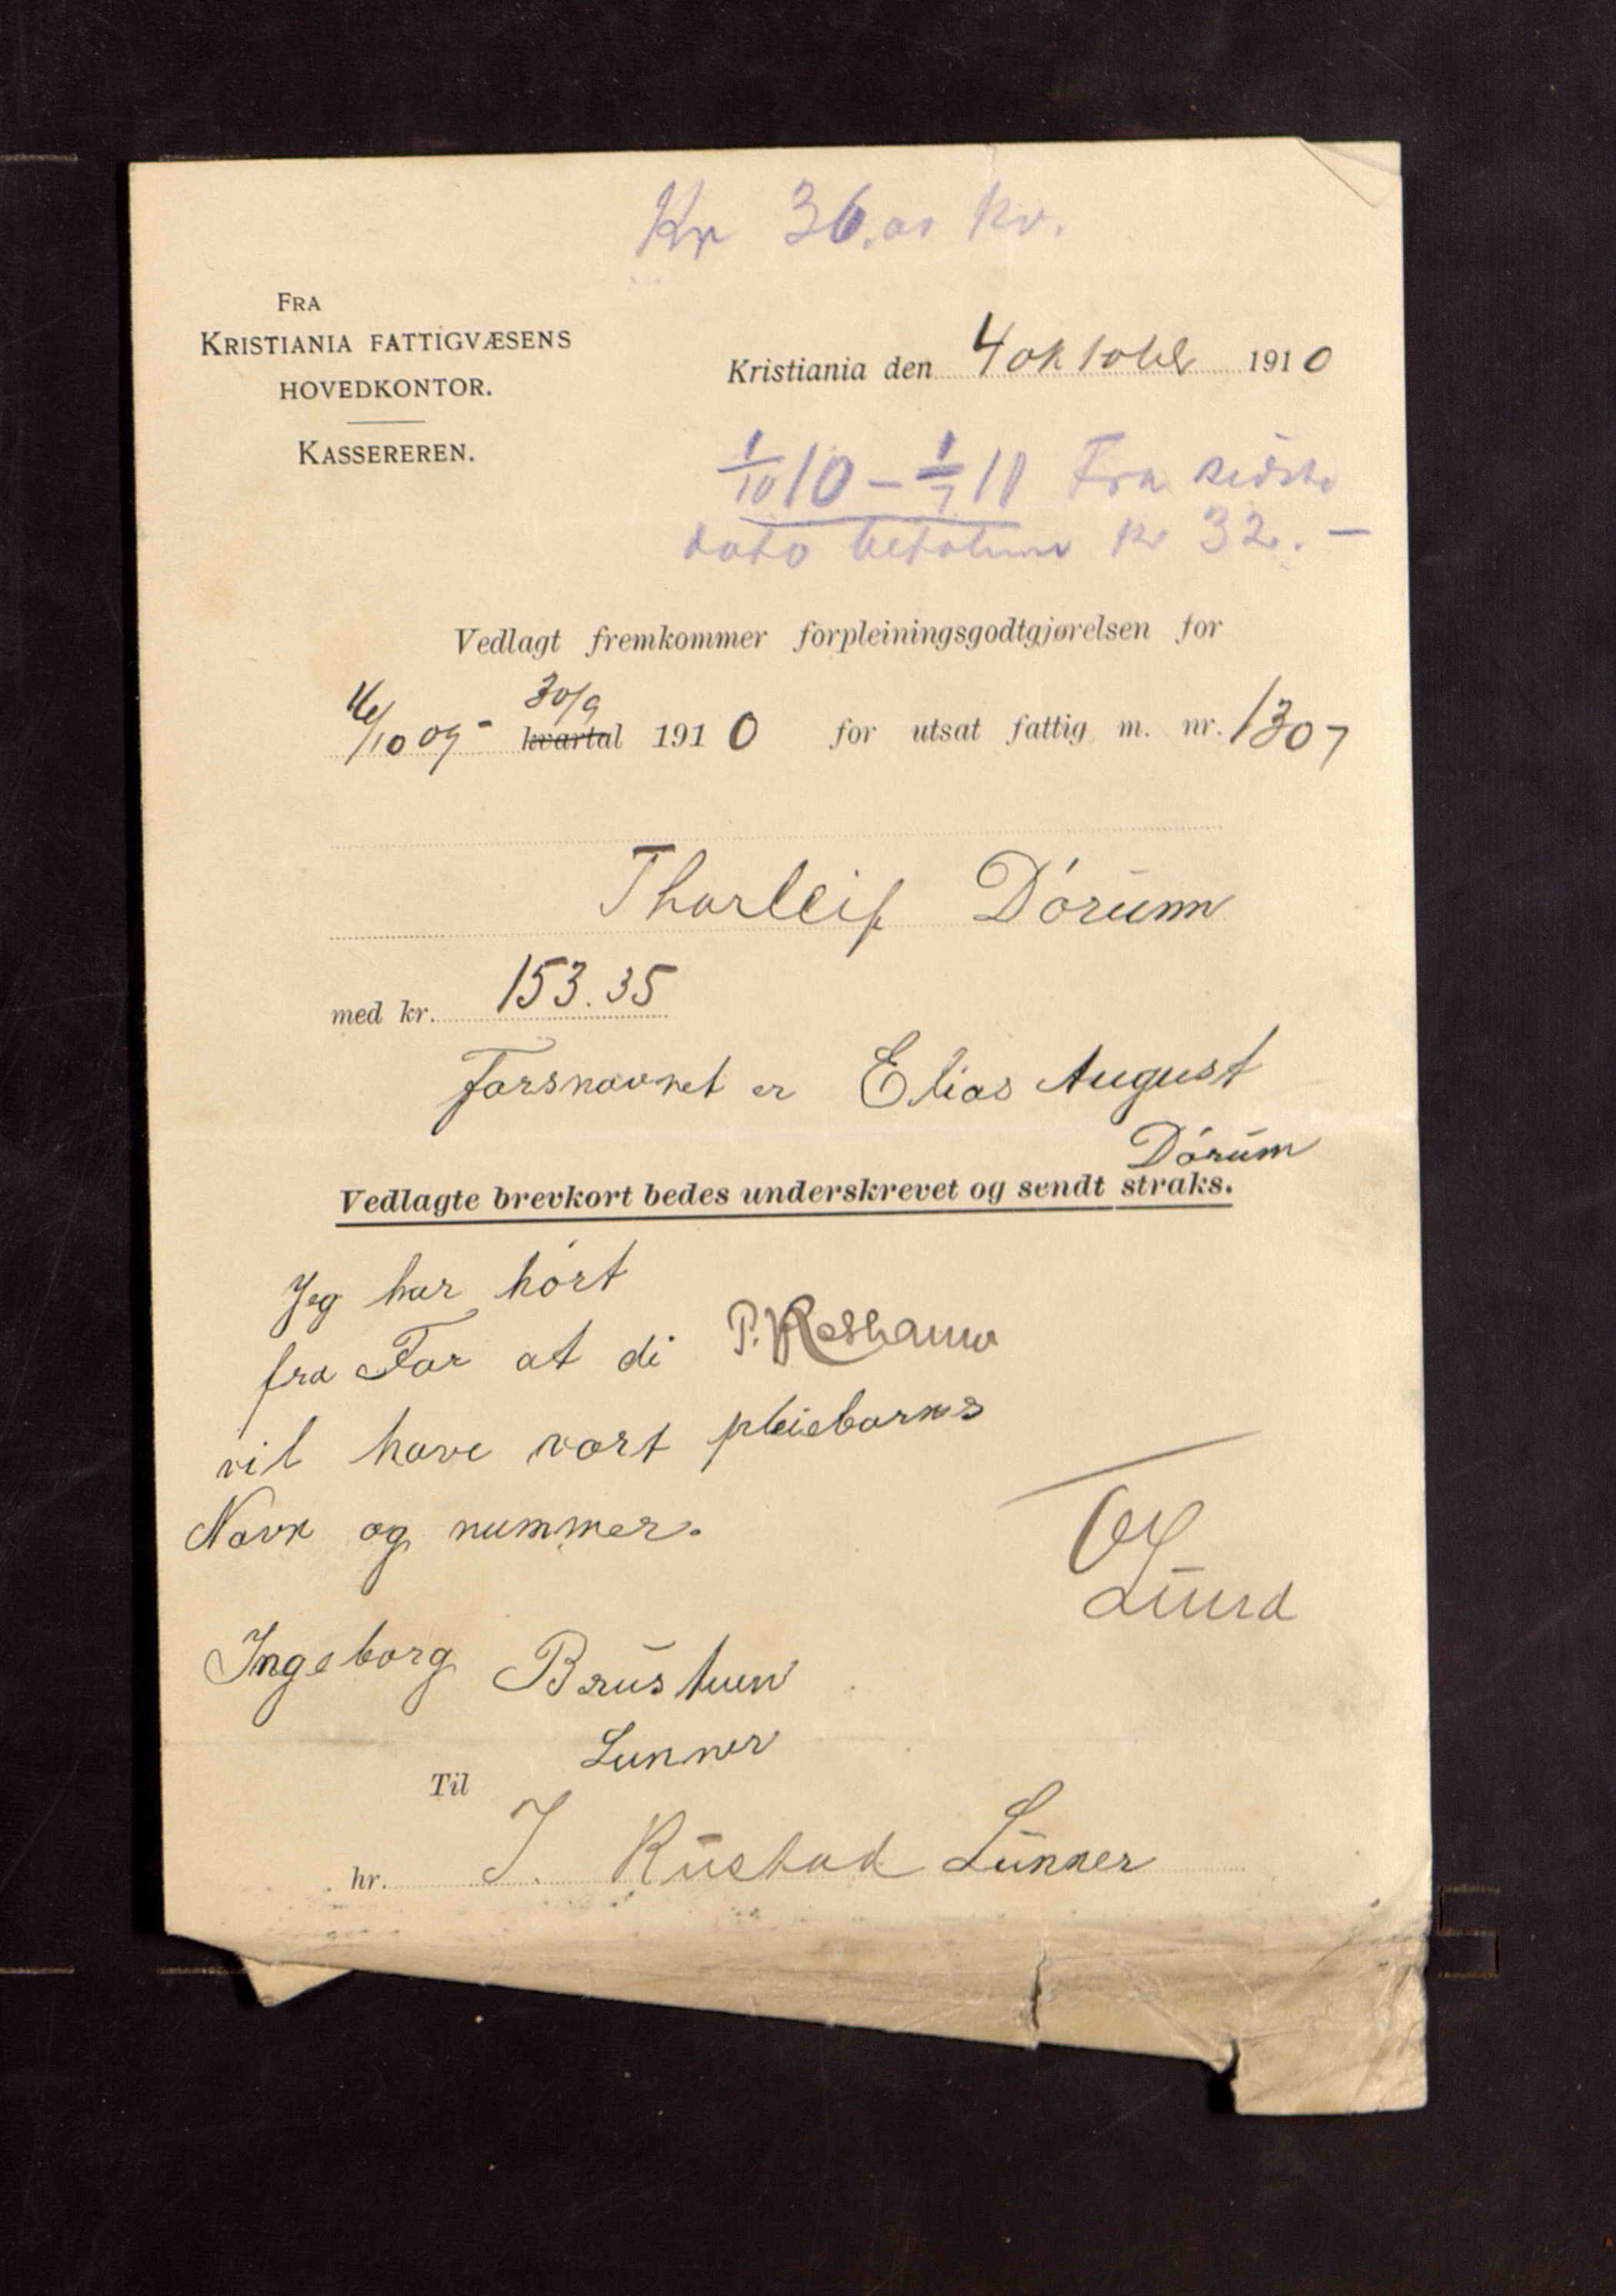 Kr 36.00 Kv.
FRA
KRISTIANIA FATTIGVÆSENS
HOVEDKONTOR.
KASSEREREN.
Kristiania den 4 oktober 1910
1/10 10 – 1/7 11 Fra sidste
dato betales kr 32.–
Vedlagt fremkommer forpleiningsgodtgjørelsen for
16/10 09 - 30/9 kvartal 1910 for utsat fattig m. nr. 1307
Thorleif Dórum
med kr. 153.35
Farsnavnet er Elias August
Dórum
Vedlagte brevkort bedes underskrevet og sendt straks.
Jeg har hórt
fra Far at di
vil have vort pleiebarns
Navn og nummer.
Lund
Ingeborg Brustuen
Lunner
Til
hr. J. Rustad Lunner